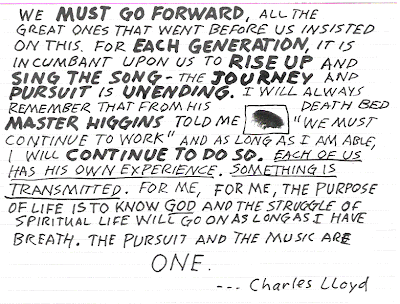 WE MUST GO FORWARD, ALL THE
GREAT ONES THAT WENT BEFORE US INSISTED
ON THIS. FOR EACH GENERATION, IT IS
INCUMBANT UPON US TO RISE UP AND
SING THE SONG - THE JOURNEY AND
PURSUIT IS UNENDING. I WILL ALWAYS
REMEMBER THAT FROM HIS DEATH BED
MASTER HIGGINS TOLD ME "WE MUST
CONTINUE TO WORK" AND AS LONG AS I AM ABLE,
I WILL CONTINUE TO DO SO. EACH OF US
HAS HIS OWN EXPERIENCE. SOMETHING IS
TRANSMITTED. FOR ME, FOR ME, THE PURPOSE
OF LIFE IS TO KNOW GOD AND THE STRUGGLE OF
SPIRITUAL LIFE WILL GO ON AS LONG AS I HAVE
BREATH. THE PURSUIT AND THE MUSIC ARE
ONE.
--- Charles LLoyd